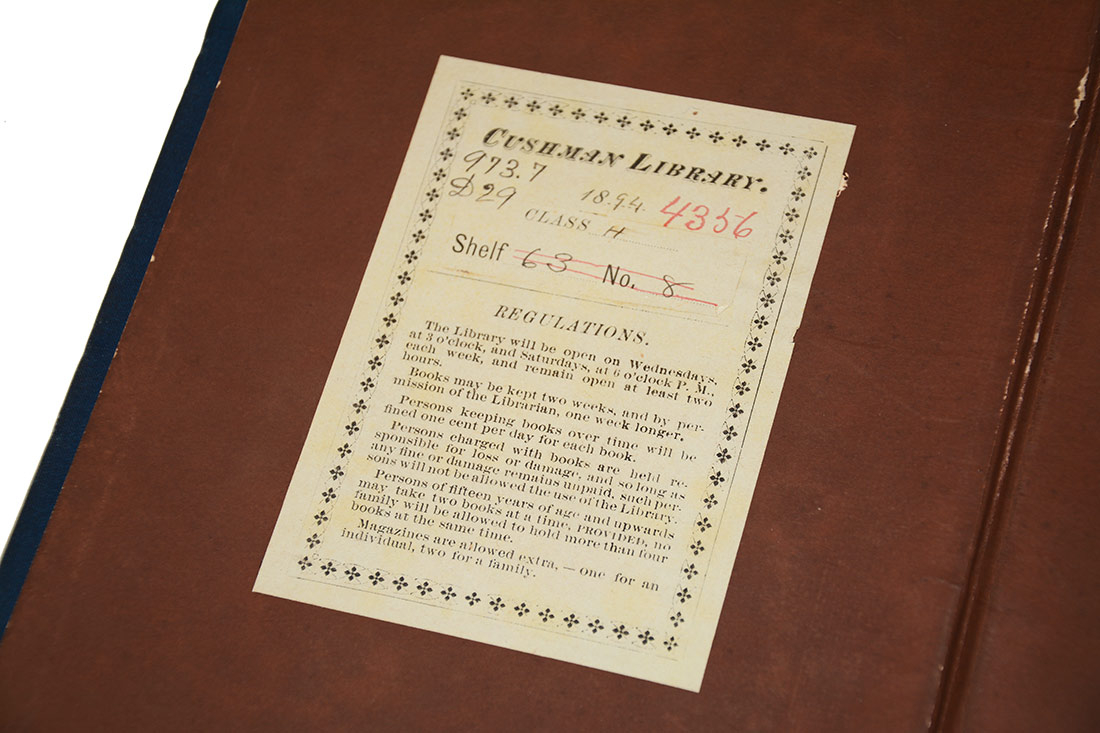 CUSHMAN LIBRARY.
973.7
D29
1894
4356
CLASS H
Shelf 63 No. 8
REGULATIONS.
The Library will be open on Wednesdays,
at 3 o'clock, and Saturdays, at 6 o'clock P. M.,
each week, and remain open at least two
hours.
Books may be kept two weeks, and by per-
mission of the Librarian, one week longer.
Persons keeping books over time will be
fined one cent per day for each book.
Persons charged with books are held re-
sponsible for loss or damage, and so long as
any fine or damage remains unpaid, such per-
sons will not be allowed the use of the Library.
Persons of fifteen years of age and upwards
may take two books at a time, PROVIDED, no
family will be allowed to hold more than four
books at the same time.
Magazines are allowed extra, — one for an
individual, two for a family.